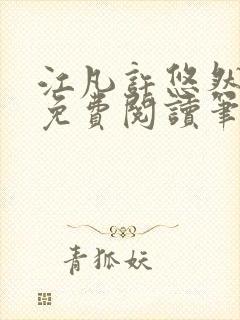 江凡許悠然
免費閱讀筆
青狐妖